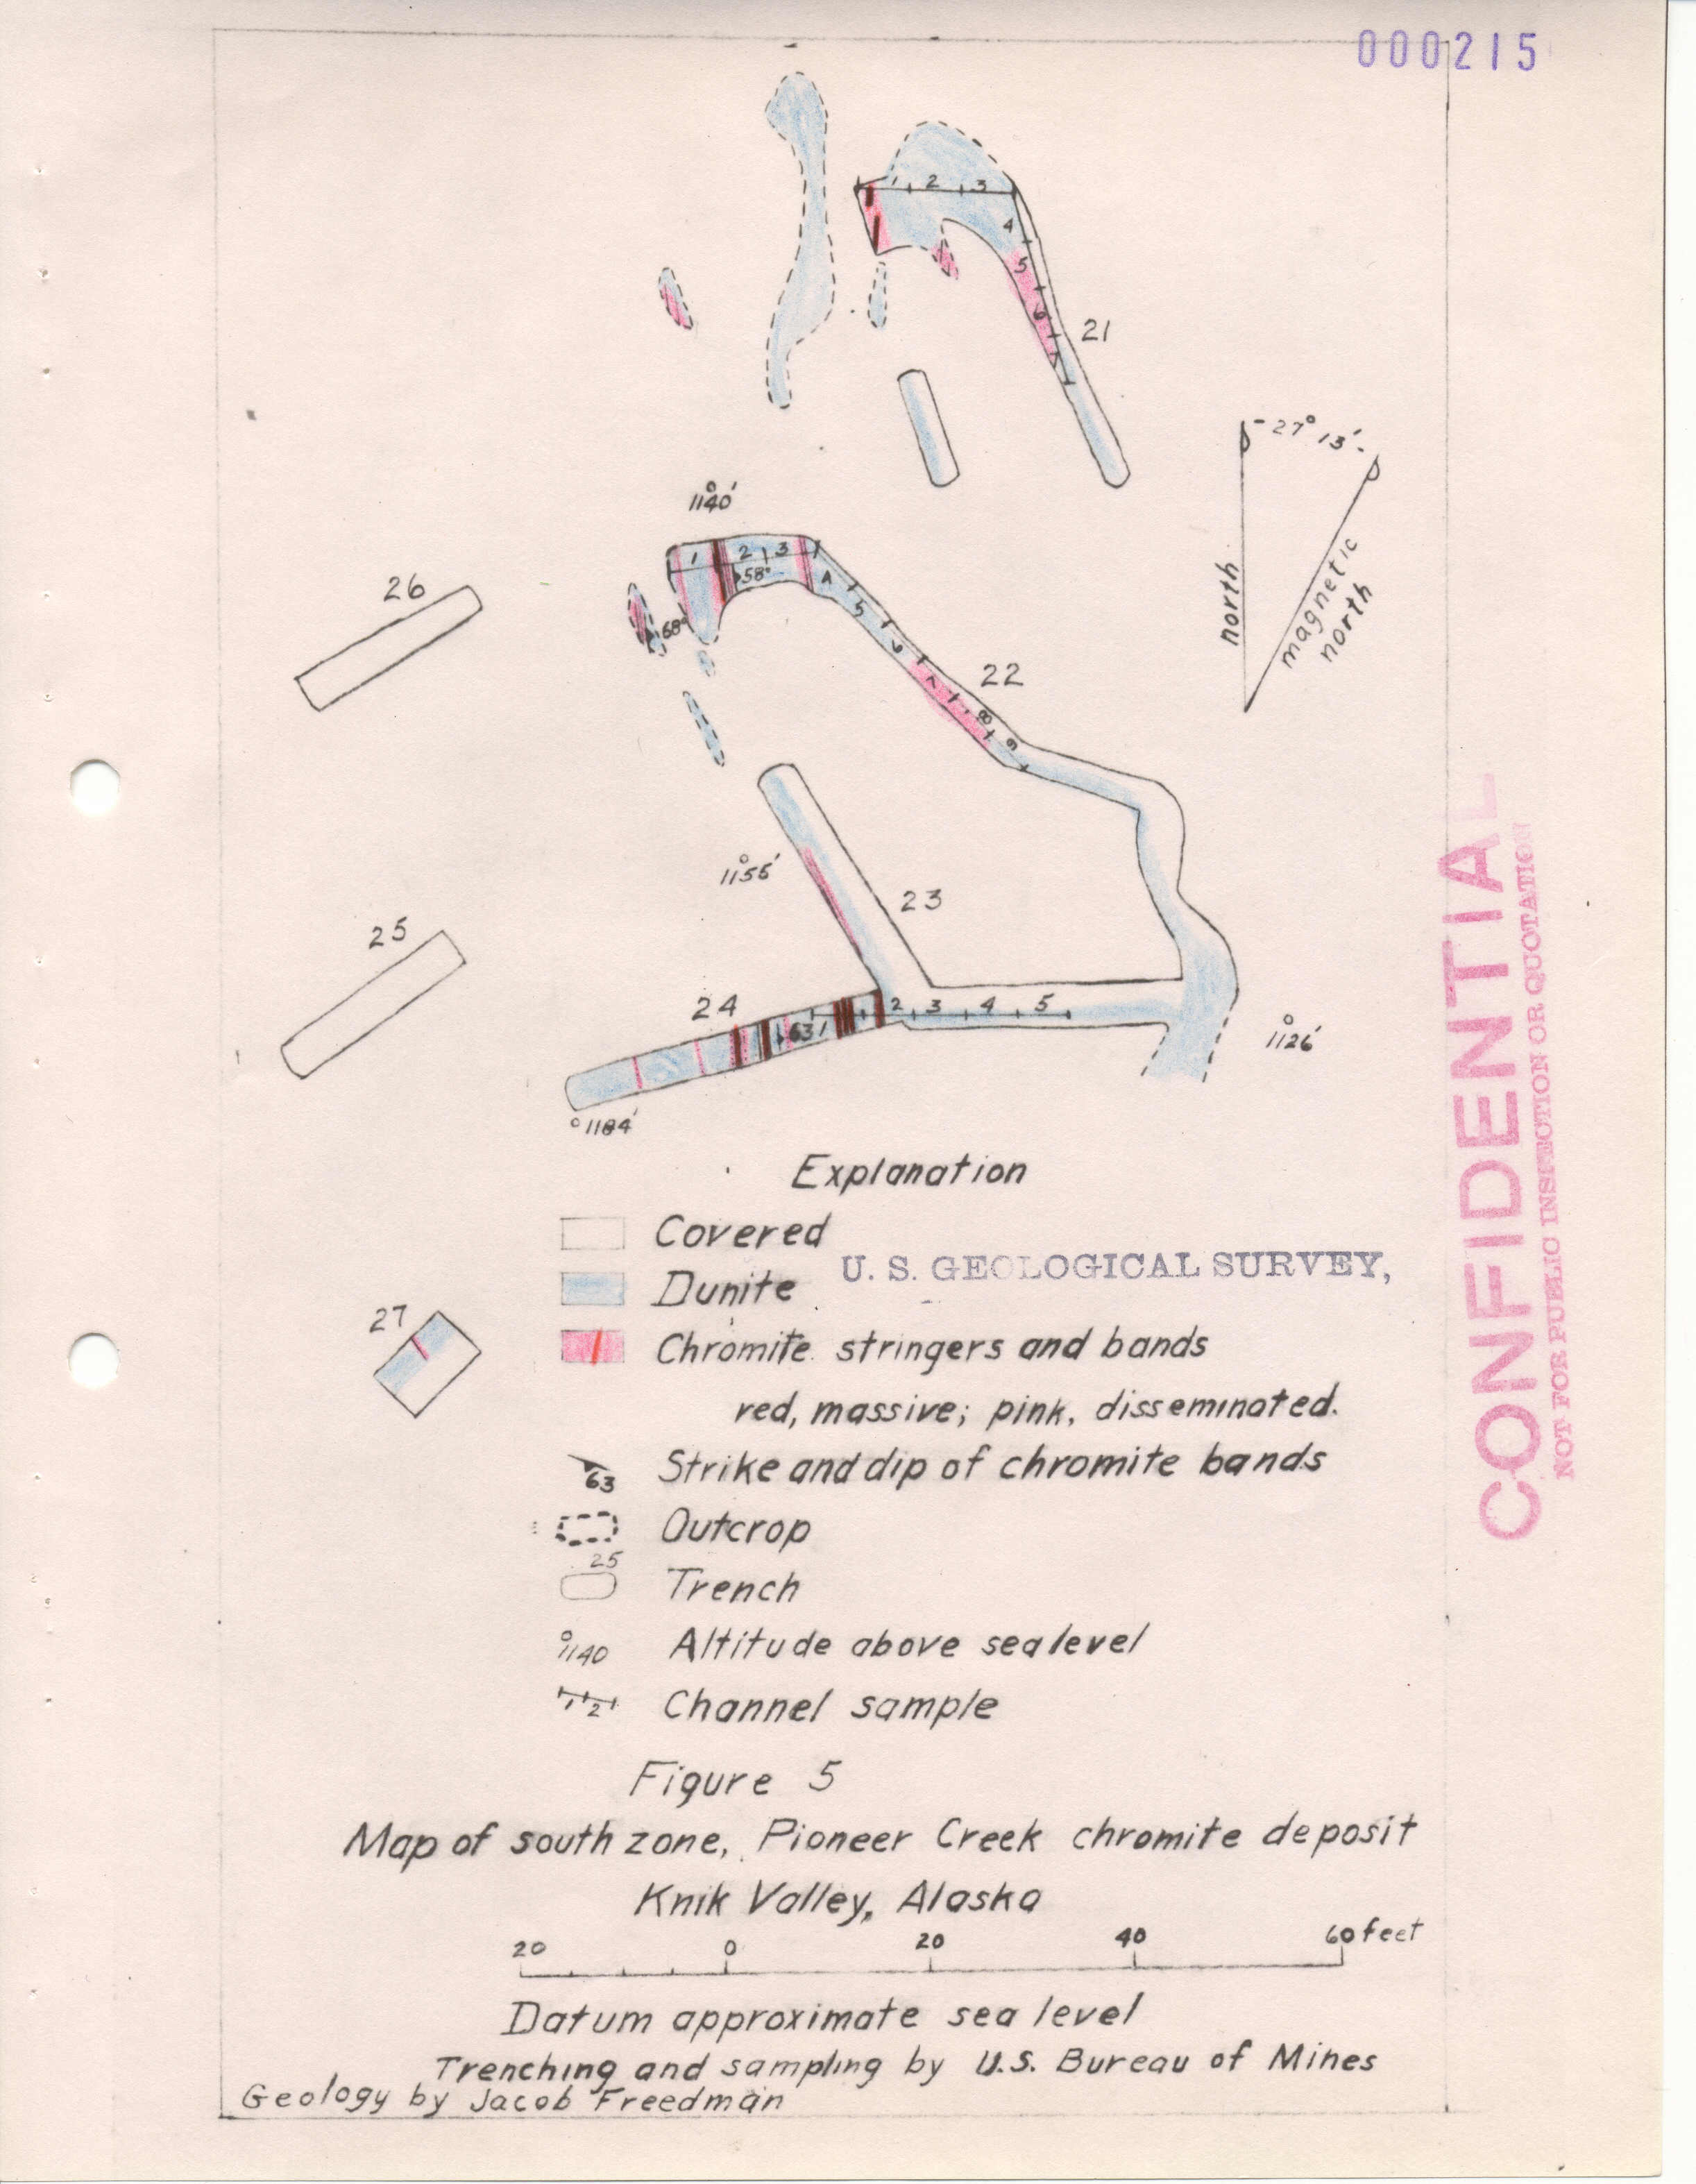 000215
1 2 3
4
5
6
7
21
27° 13'
north
magnetic
north
1140'
1 2 3
58°
4
5
6
7
8
9
68°
22
26
1155'
23
25
24
63 1 2 3 4 5
1126'
1184'
Explanation
Covered
U. S. GEOLOGICAL SURVEY,
Dunite
27
Chromite stringers and bands
red, massive; pink, disseminated.
63 Strike and dip of chromite bands
Outcrop
25
Trench
1140 Altitude above sea level
1 2 Channel sample
Figure 5
Map of south zone, Pioneer Creek chromite deposit
Knik Valley, Alaska
20 0 20 40 60 feet
Datum approximate sea level
Trenching and sampling by U.S. Bureau of Mines
Geology by Jacob Freedman
CONFIDENTIAL
NOT FOR PUBLIC INSPECTION OR QUOTATION